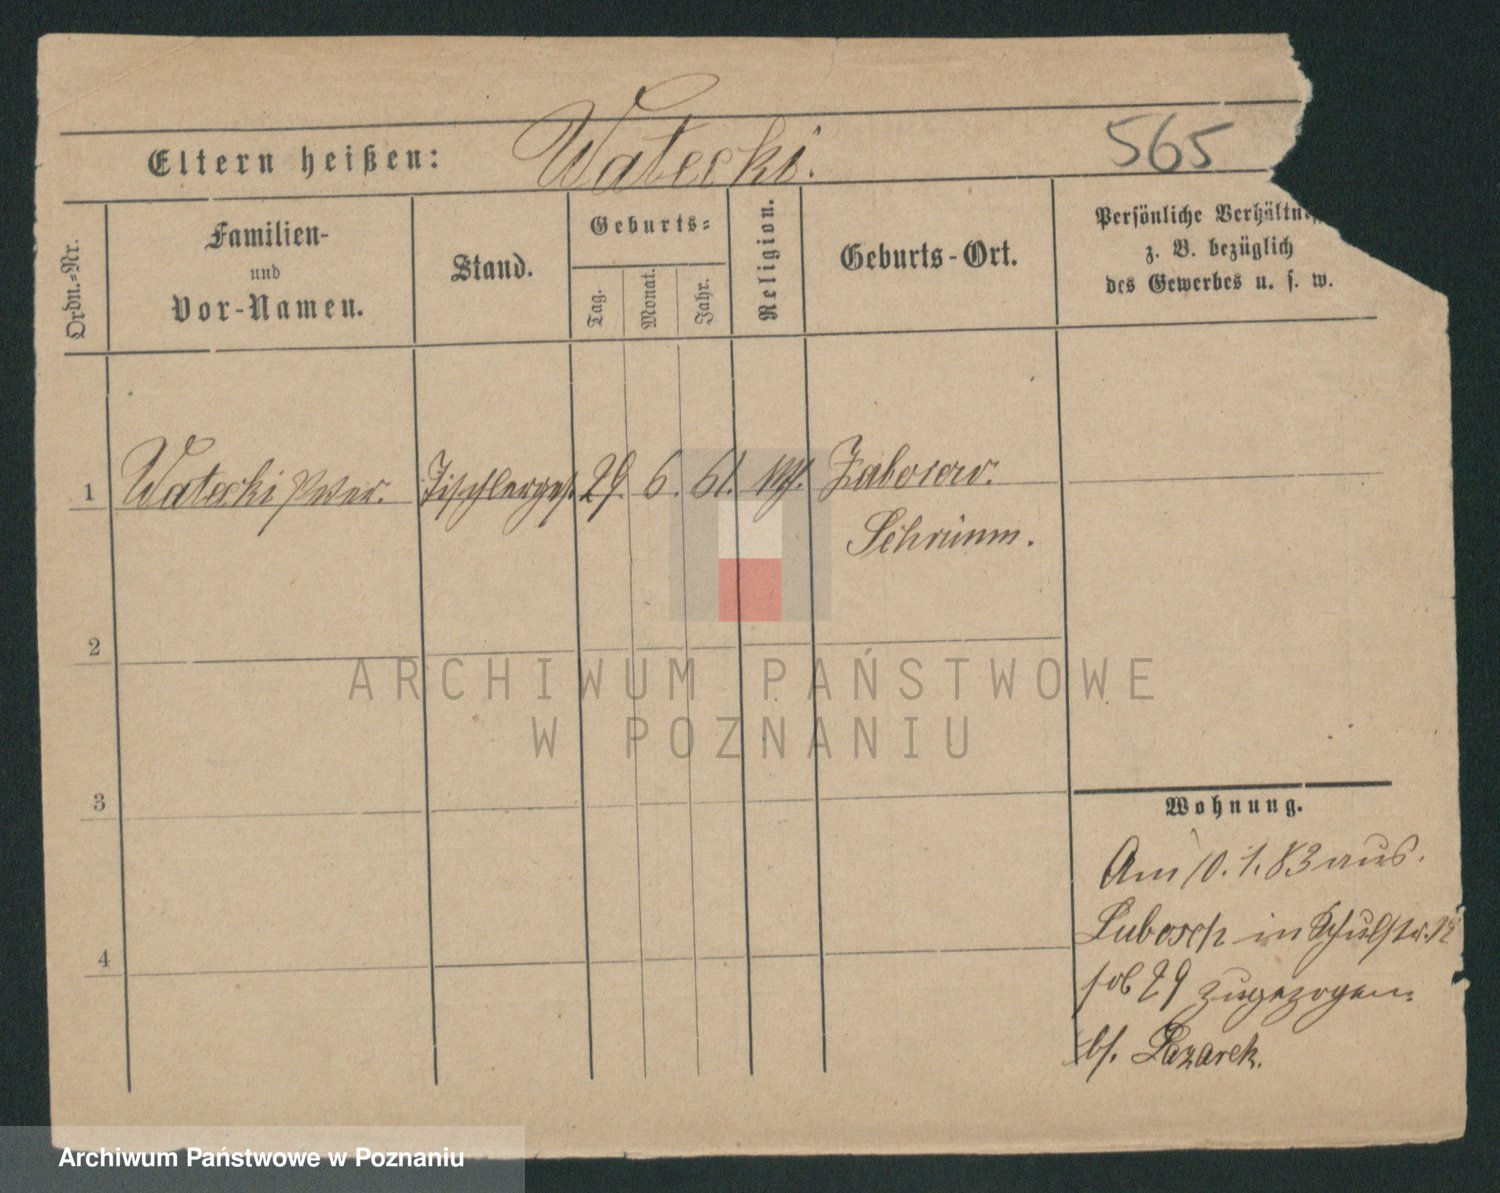 565
Eltern heißen: Watecki.
Ordn.-Nr.
Familien-
und
Vor-Namen.
Stand.
Geburts-
Tag.
Monat.
Jahr.
Religion.
Geburts-Ort.
Persönliche Verhältniss
z. B. bezüglich
des Gewerbes u. s. w.
1 Watecki Tischlerges. 29. 6. 61. Zaborow.
Schrimm.
2
3
4
Wohnung.
Am 10. 1. 83 aus
Lubosch in Schulstr. 12
29 zugezogen
bs. Lazarek.
ARCHIWUM PAŃSTWOWE
W POZNANIU
Archiwum Państwowe w Poznaniu